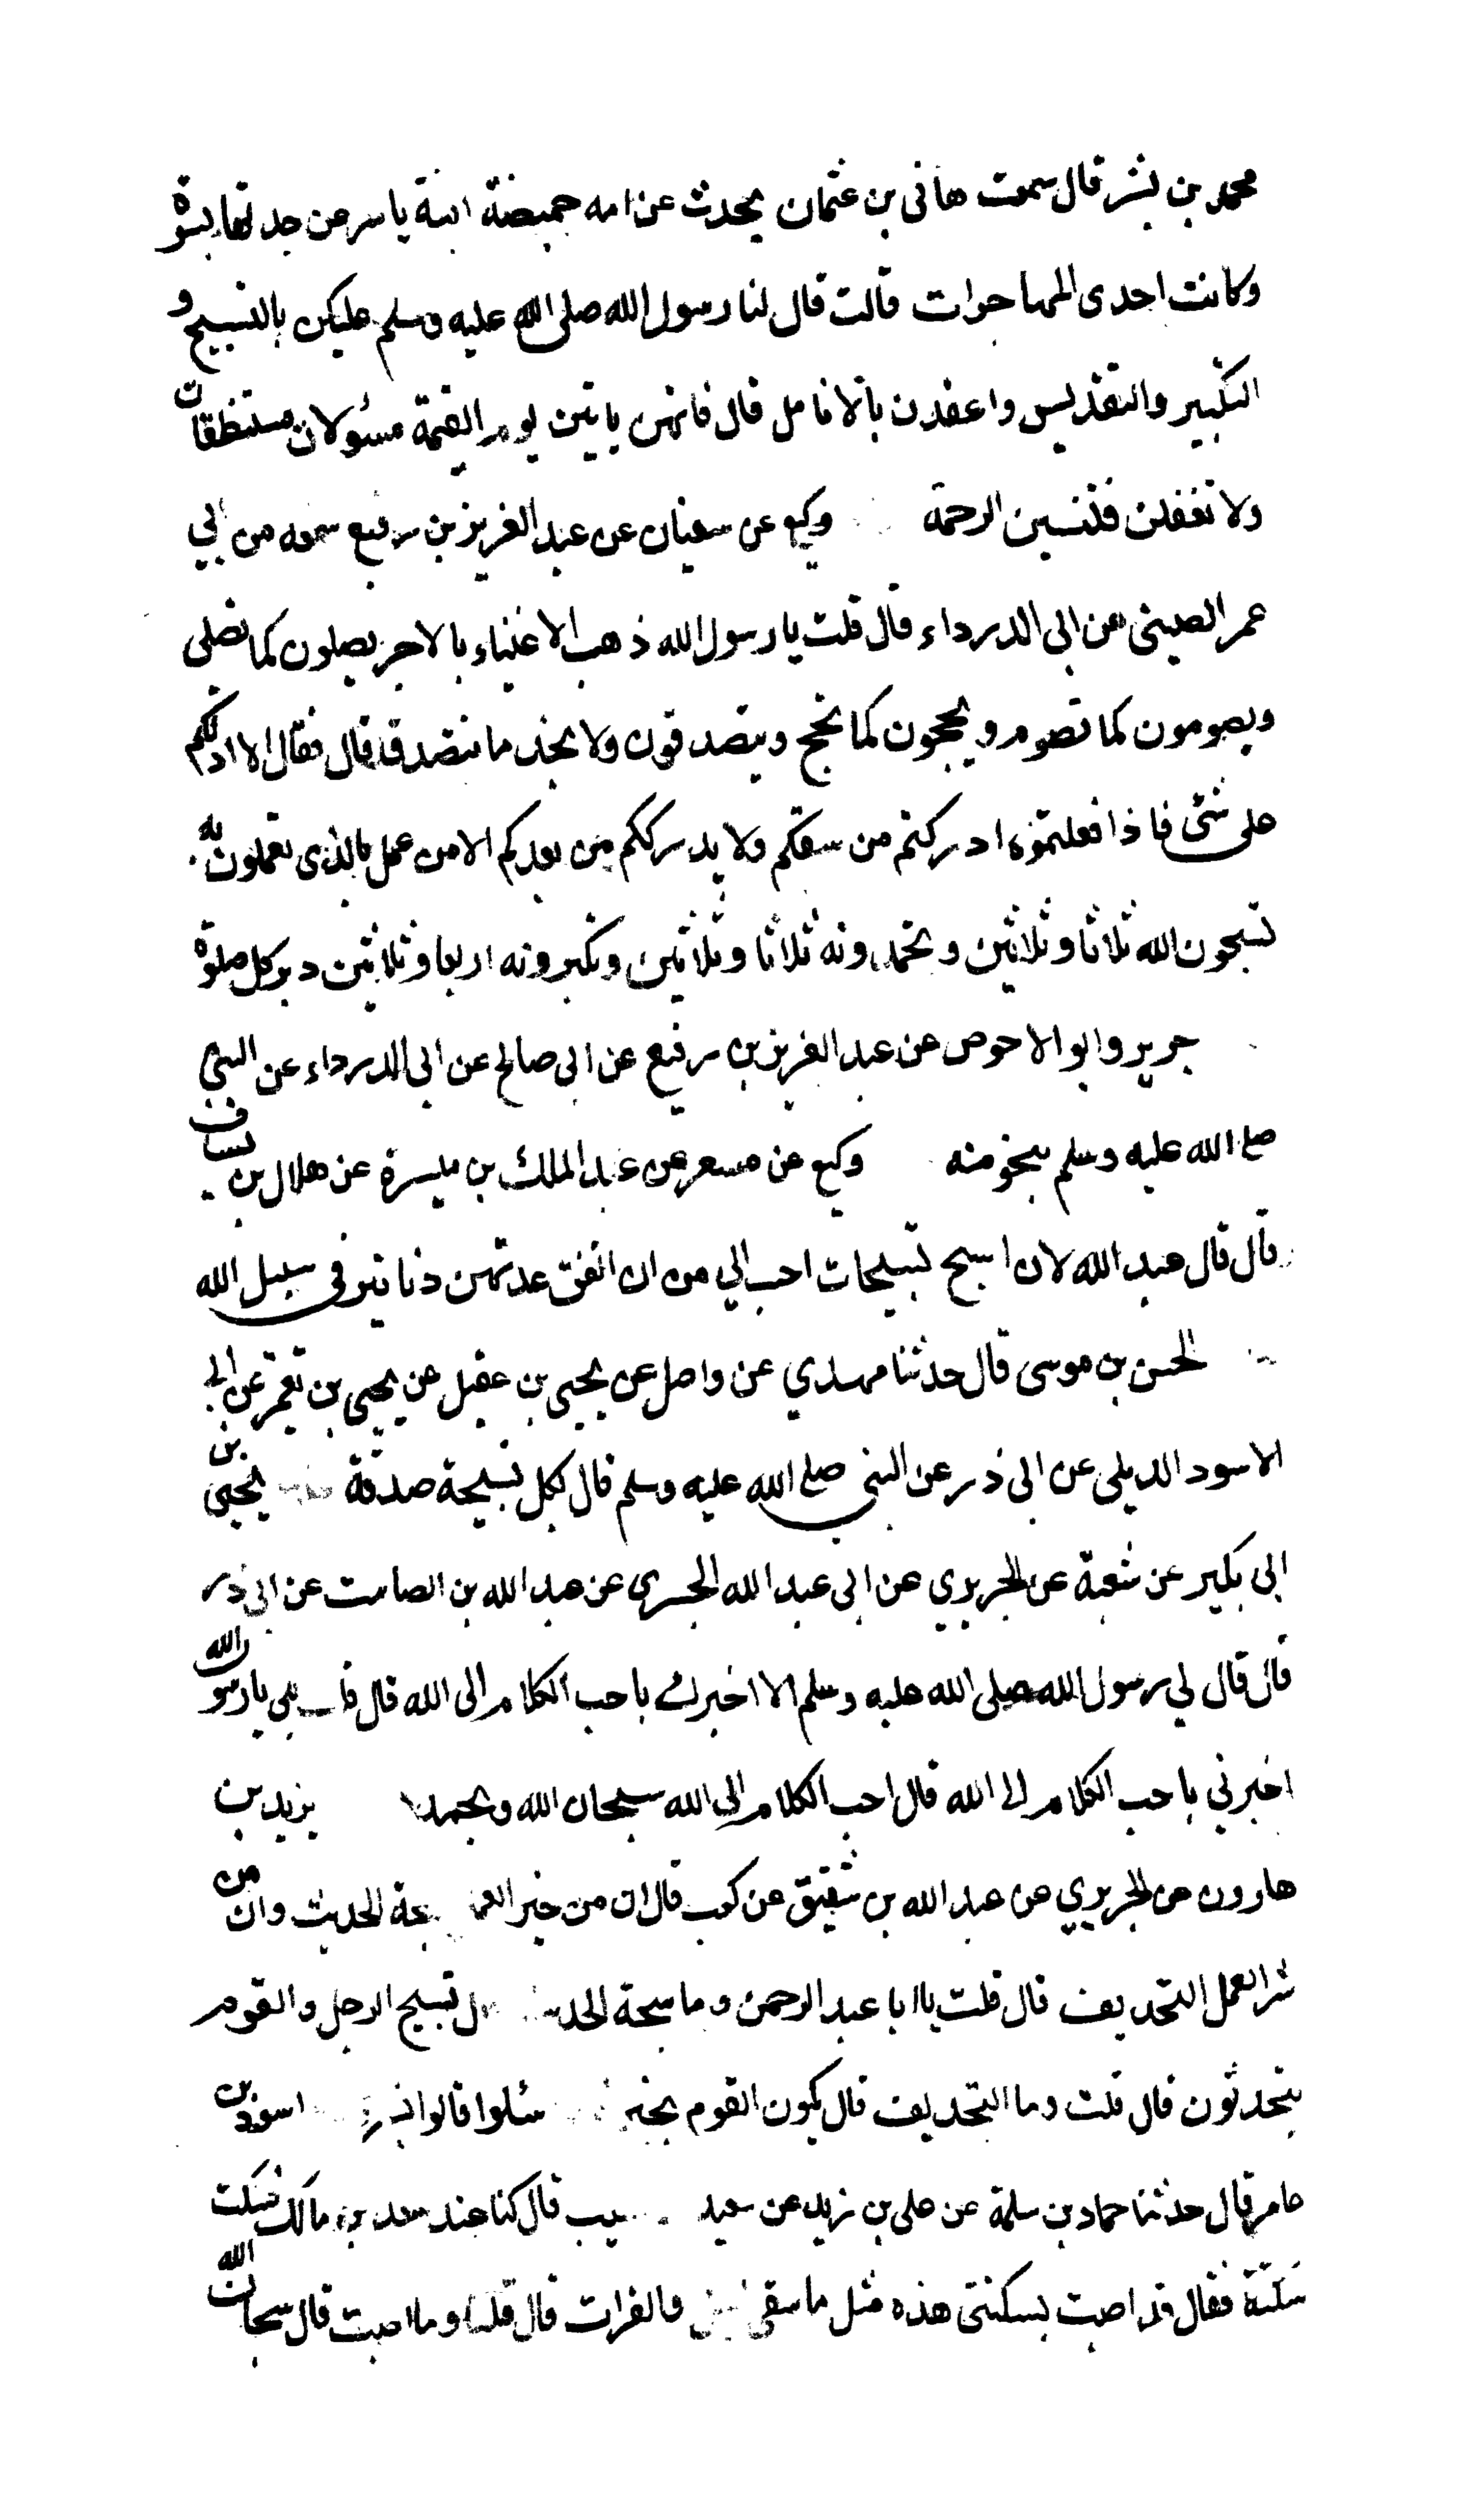 محمد بن بشر قال سمعت هانی بن عثمان يحدث عن امه حميضة ابنة ياسر عن جدتها يسيرة
وكانت احدى المهاجرات قالت قال لنا رسول الله صلى الله عليه وسلم عليكن بالتسبيح و
التكبير والتقديس واعقدن بالانامل قال فانهن ياتين يوم القيمة مسئولات مستنطقات
ولا تغفلن فتنسين الرحمة وكيع عن سفيان عن عبد العزيز بن رفيع سمعه من ابي
عمر الصينى عن ابى الدرداء قال قلت يا رسول الله ذهب الاغنياء بالاجر يصلون كما نصلى
ويصومون كما نصوم ويحجون كما نحج ويتصدقون ولا نجد ما نتصدق قال فقال الا ادلكم
على شئ فاذا فعلتموه ادركتم من سبقكم ولا يدرككم من بعدكم الا من عمل بالذى تعملون به
تسبحون الله ثلاثا وثلاثين وتحمدونه ثلاثا وثلاثين وتكبرونه اربعا وثلاثين دبر كل صلوة
جرير وابو الاحوص عن عبد العزيز بن رفيع عن ابى صالح عن ابى الدرداء عن النبي
صلى الله عليه وسلم بنحو منه وكيع عن مسعر عن عبد الملك بن ميسرة عن هلال بن يساف
قال قال عبد الله لان اسبح تسبيحات احب الي من ان انفق عدتهن دنانير فى سبيل الله
الحسن بن موسى قال حدثنا مهدي عن واصل عن يحيى بن عقيل عن يحيى بن يعمر عن ابي
الاسود الديلى عن ابى ذر عن النبى صلى الله عليه وسلم قال بكل تسبيحة صدقة يحيى بن
ابى بكير عن شعبة عن الجريري عن ابى عبد الله الجسرى عن عبد الله بن الصامت عن ابى ذر
قال قال لي رسول الله صلى الله عليه وسلم الا اخبرك باحب الكلام الى الله قال قلت بلى يا رسول الله
اخبرني باحب الكلام الى الله قال احب الكلام الى الله سبحان الله وبحمده يزيد بن
هارون عن الجريري عن عبد الله بن شقيق عن كعب قال ان من خير العمل سبحة الحديث وان من
شر العمل التحديف قال قلت يا ابا عبد الرحمن وما سبحة الحديث قال تسبيح الرجل والقوم
يتحدثون قال قلت وما التحديف قال يكون القوم بخير سئلوا قالوا بشر اسود بن
عامر قال حدثنا حماد بن سلمة عن على بن زيد عن سعيد قال كنا عند سعد بن مالك فسكت
سكتة فقال قد اصبت بسكتتى هذه مثل ما سقى والفرات قال قلنا وما اصبت قال سبحان الله